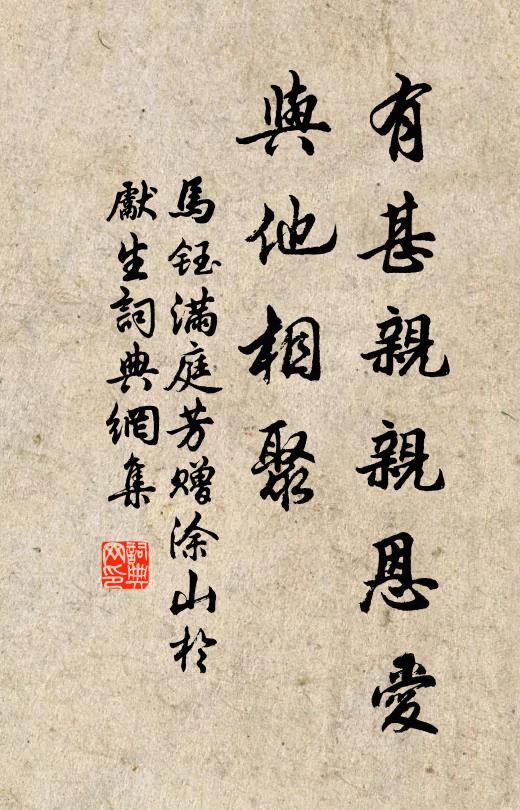 有甚親親恩愛
與他相聚
馬鈺滿庭芳贈涂山於
獻生詞典網集
詞典網印